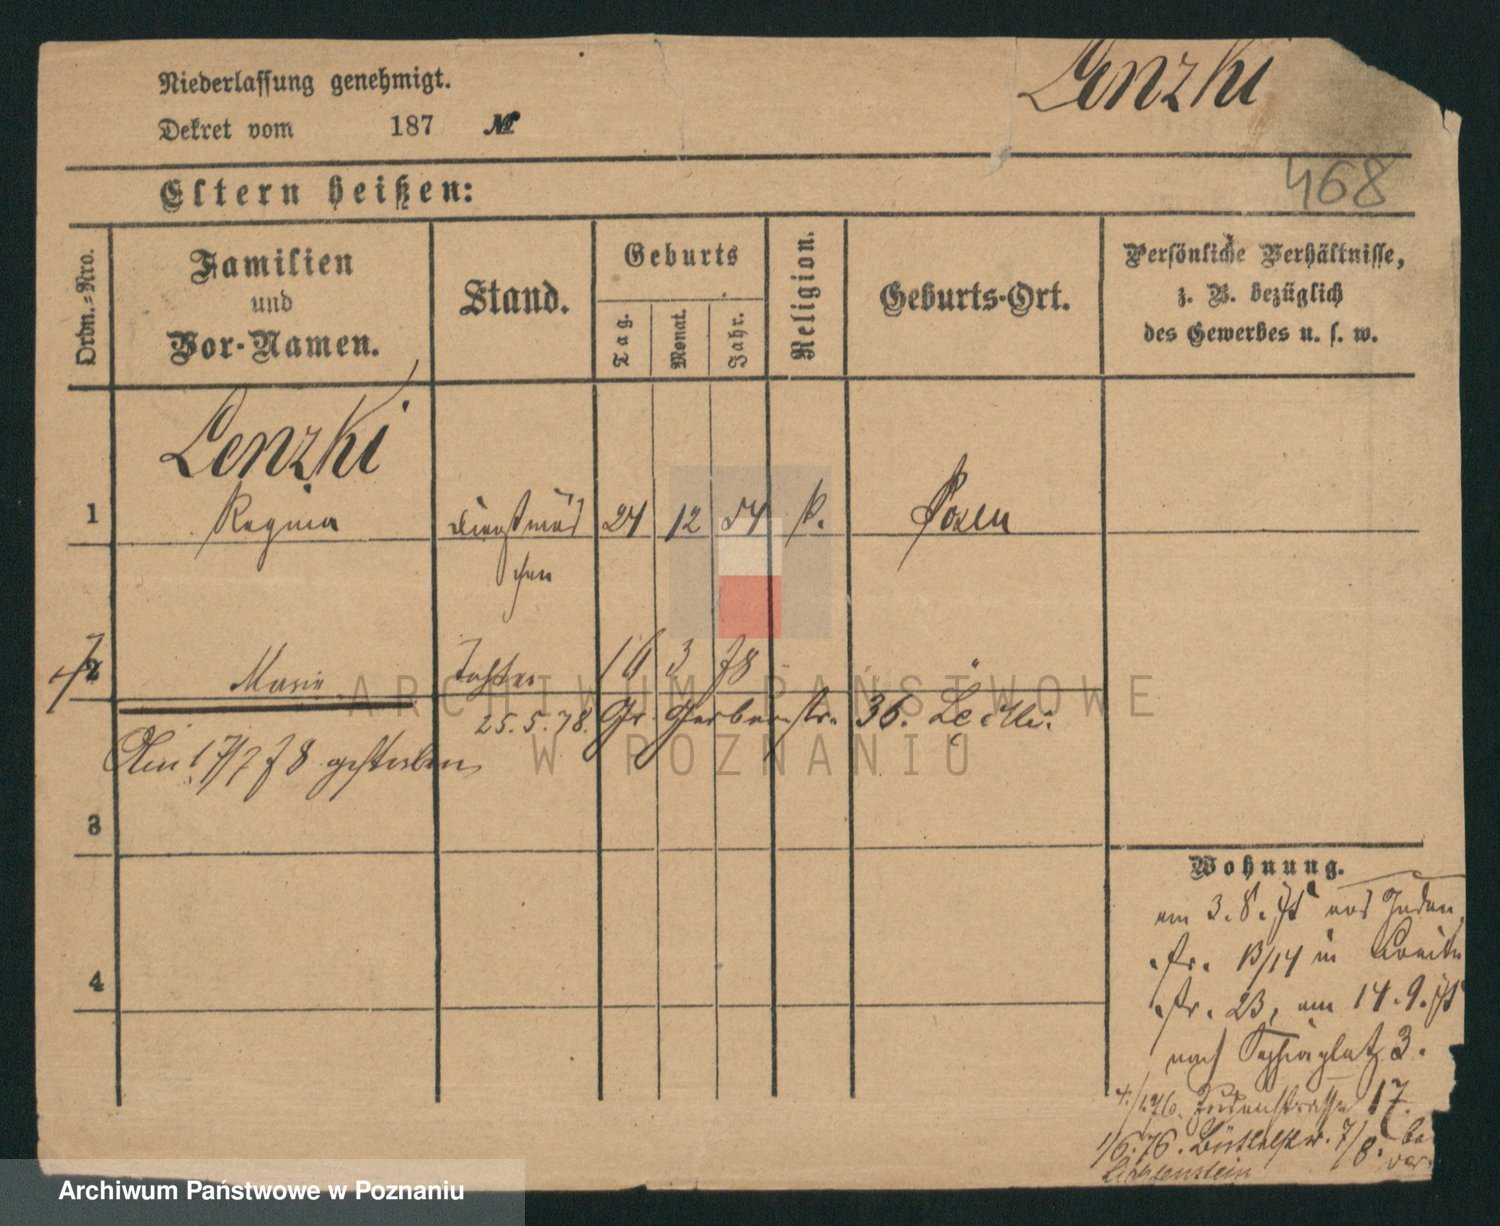 Lenzki
Niederlassung genehmigt.
Dekret vom 187 №
468
Eltern heißen:
Ordn.=Nro.
Familien
und
Vor-Namen.
Stand.
Geburts
Tag.
Monat.
Jahr.
Religion.
Geburts-Ort.
Persönliche Verhältnisse,
z. B. bezüglich
des Gewerbes u. s. w.
Lenzki
1 Regina Dienstmäd 24 12 54 k. Posen
chen
2 Marie Tochter 16 3 78
25.5.78. Gr. Gerberstr. 36.
Am 17/7 78 gestorben
3
4
Wohnung.
am 3.8. aus Juden
str. 13/14 in Breite
str. 23, am 14.9.
nach Sapiehaplatz 3.
4/1.76. Judenstrasse 17.
1/6.76. Büttelstr. 7/8.
Lichtenstein
ARCHIWUM PAŃSTWOWE
W POZNANIU
Archiwum Państwowe w Poznaniu